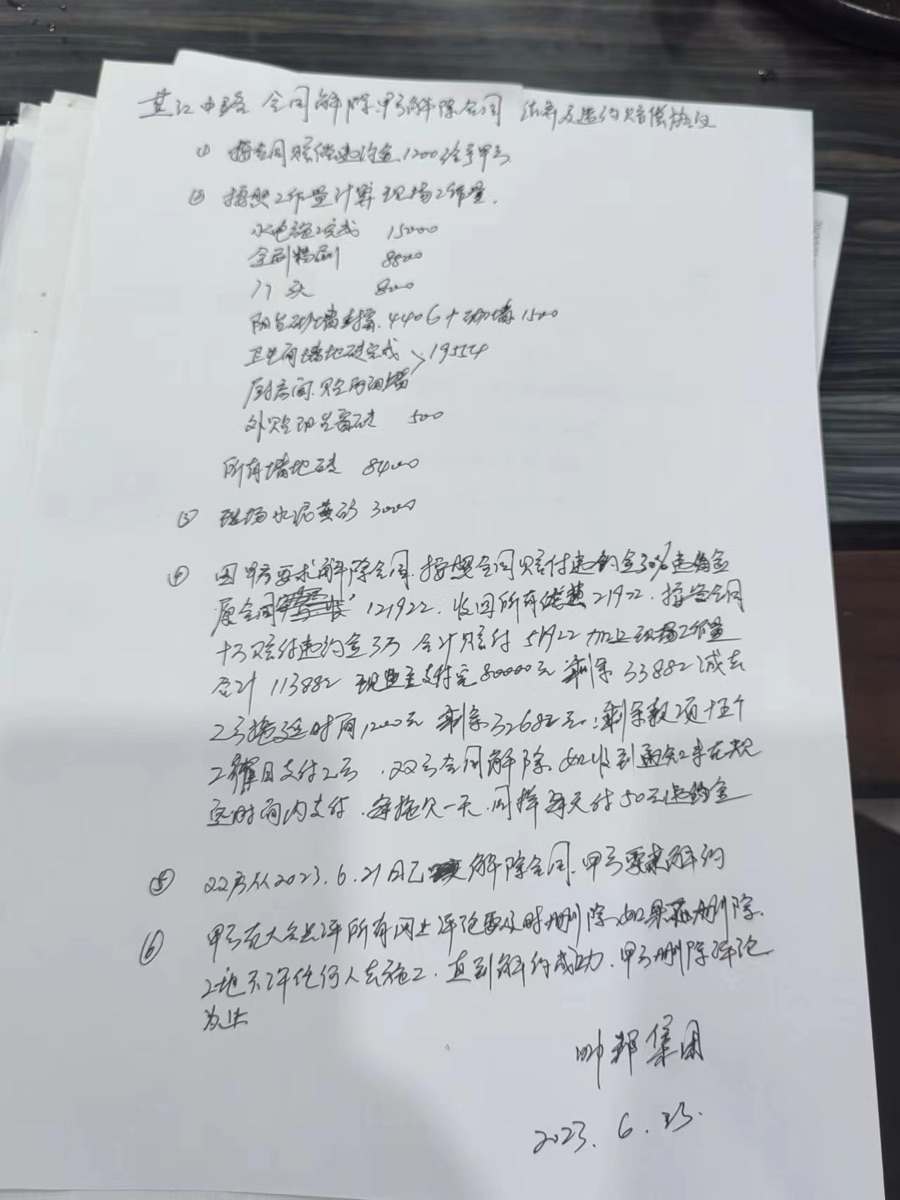 合同解除.甲方解除合同 结算及违约赔偿协议
① 按合同赔偿违约金1200给予甲方
② 按照工作量计算现场工作量.
水电施工完成 15000
全刷粉刷 8800
门头 800
阳台砂墙封 4406+砌墙1500
卫生间墙地砖完成 >19554
厨房间.贴两面墙
外贴阳台 砖 500
所有墙地砖 8400
③ 现场水泥黄砂 3000
④ 因甲方要求解除合同.按照合同赔付违约金30%违约金
原合同 121922.收回所有优惠21922.按照合同
十万赔付违约金3万 合计赔付 51922 加上现场工作量
合计 113882 现业主支付完80000元 剩余 33882 减去
乙方拖延时间1200元 剩余32682元:剩余款项十五个
工作日支付乙方.双方合同解除.如收到通知未在规
定时间内支付.每拖欠一天.同样每天付50元违约金
⑤ 双方从2023.6.21日已解除合同.甲方要求解约
⑥ 甲方在大众点评所有网上评论要及时删除.如果 删除.
工地不许任何人去施工.直到解约成功.甲方删除评论
为止
帅邦集团
2023.6.